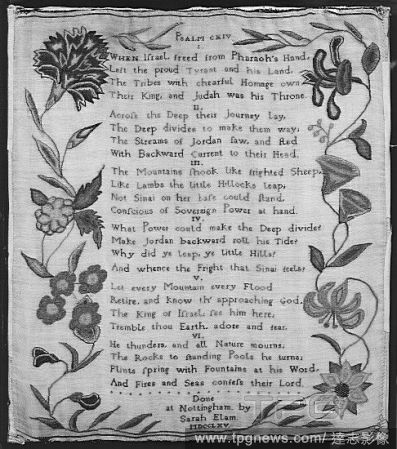 PSALM CXIV
I.
WHEN Ifrael, freed from Pharaoh's Hand,
Left the proud Tyrant and his Land,
The Tribes with chearful Homage own
Their King, and Judah was his Throne.
II.
Acrofs the Deep their Journey lay,
The Deep divides to make them way;
The Streams of Jordan faw, and fled
With Backward Current to their Head.
III.
The Mountains fhook like frighted Sheep,
Like Lambs the little Hillocks leap;
Not Sinai on her bafe could ftand,
Confcious of Sovereign Power at hand.
IV.
What Power could make the Deep divide?
Make Jordan backward roll his Tide?
Why did ye leap, ye little Hills?
And whence the Fright that Sinai feels?
V.
Let every Mountain every Flood
Retire, and know th' approaching God,
The King of Ifrael, fee him here,
Tremble thou Earth, adore and fear.
VI.
He thunders, and all Nature mourns;
The Rocks to ftanding Pools he turns;
Flints fpring with Fountains at his Word,
And Fires and Seas confefs their Lord.
Done
at Nottingham, by
Sarah Elam.
MDCCLXV.
TPG
www.tpgnews.com/ 達志影像